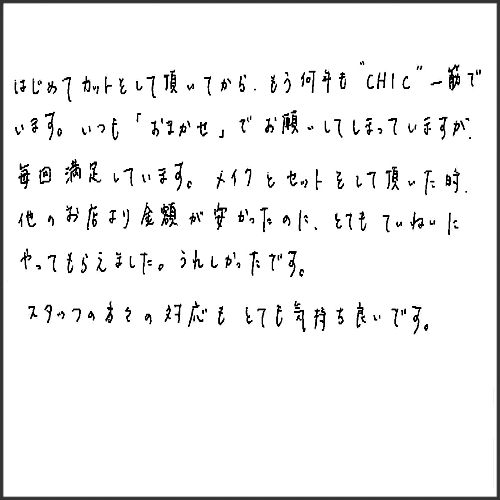 はじめてカットをして頂いてから、もう何年も"CHIC"一筋で
います。いつも「おまかせ」でお願いしてしまっていますが、
毎回満足しています。メイクとセットをして頂いた時、
他のお店より金額が安かったのに、とてもていねいに
やってもらえました。うれしかったです。
スタッフの方々の対応もとても気持ち良いです。